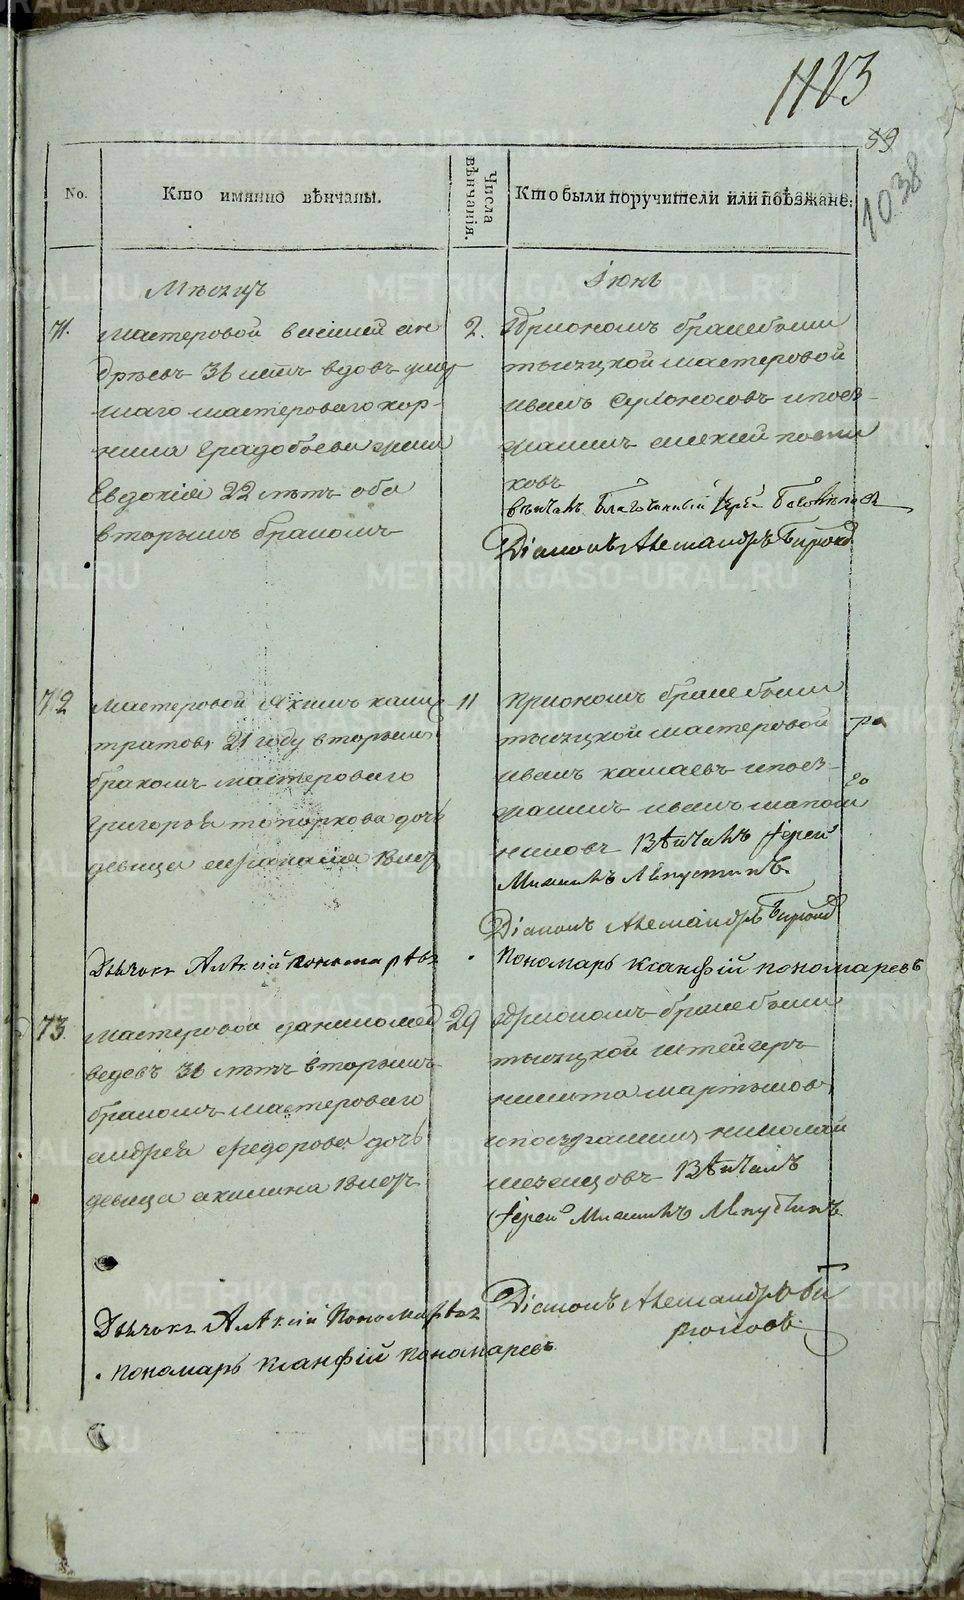 1113
59
1038
No.
Кто имянно вѣнчаны.
Числа вѣнчанія.
Кто были поручители или поѣзжане.
Мѣсяцъ
Іюнь
71.
мастеровой василей ан
дрѣевъ 36 лѣтъ вдовъ умер
шаго мастероваго кор-
нила Градобоева жена
Евдокія 22 лѣтъ оба
вторымъ бракомъ
2.
При ономъ браке были
тысяцкой мастеровой
иванъ Сухоносовъ и поез-
жанинъ
ковъ
вѣнчалъ Благочинный Іерей
Діаконъ Александръ Бирюков
72
мастеровой Яхимъ
21 году вторымъ
бракомъ мастероваго
григорья топоркова дочь
девица 18 лет
11
При ономъ браке были
тысяцкой мастеровой
иванъ кашаевъ и поез-
жанинъ иванъ
нимовъ Вѣнчалъ Іерей
Михаилъ
Діаконъ Александръ Бирюков
Дьячокъ Алѣксій пономарѣвъ
Пономарь Ксанфій пономаревъ
73.
мастеровой данило мед
ведевъ 36 лѣтъ вторымъ
бракомъ мастероваго
андрея федорова дочь
девица акилина 18 лет
29
При ономъ браке были
тысяцкой штейгеръ
никита мартыновъ
и поезжанинъ николай
Вѣнчалъ
Іерей Михаилъ
Діаконъ Александръ Би
рюковъ
Дьячокъ Алѣксій Пономарѣвъ
Пономарь Ксанфій пономаревъ
METRIKI.GASO-URAL.RU